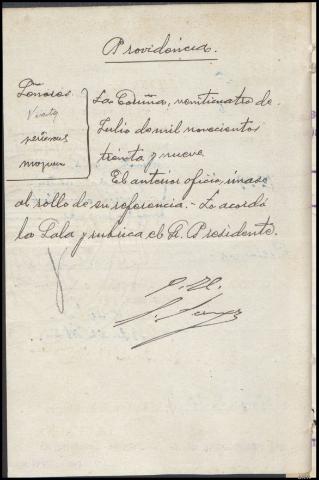 Providencia.
Señores.
La Coruña, veinticuatro de
Julio de mil novecientos
treinta y nueve
El anterior oficio, únase
al rollo de su referencia.- Lo acordó
la Sala y rubrica el Sr. Presidente.